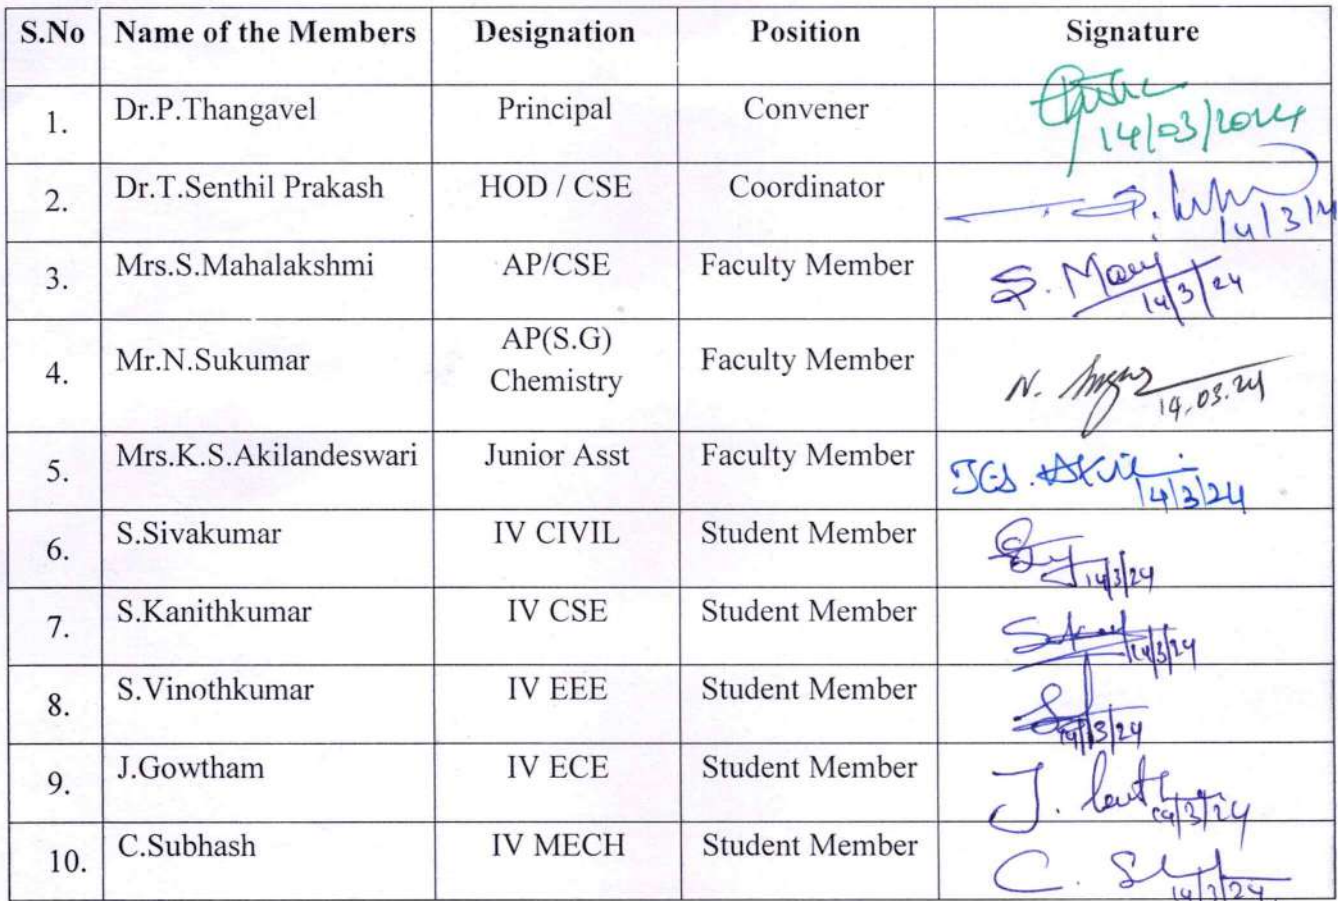 S.No Name of the Members Designation Position Signature
1. Dr.P.Thangavel Principal Convener
14/03/2024
2. Dr.T.Senthil Prakash HOD / CSE Coordinator
14/3/24
3. Mrs.S.Mahalakshmi AP/CSE Faculty Member S.
14/3/24
4. Mr.N.Sukumar AP(S.G)
Chemistry Faculty Member N.
14.03.24
5. Mrs.K.S.Akilandeswari Junior Asst Faculty Member
14/3/24
6. S.Sivakumar IV CIVIL Student Member
14/3/24
7. S.Kanithkumar IV CSE Student Member
14/3/24
8. S.Vinothkumar IV EEE Student Member
14/3/24
9. J.Gowtham IV ECE Student Member J.
14/3/24
10. C.Subhash IV MECH Student Member C.
14/3/24